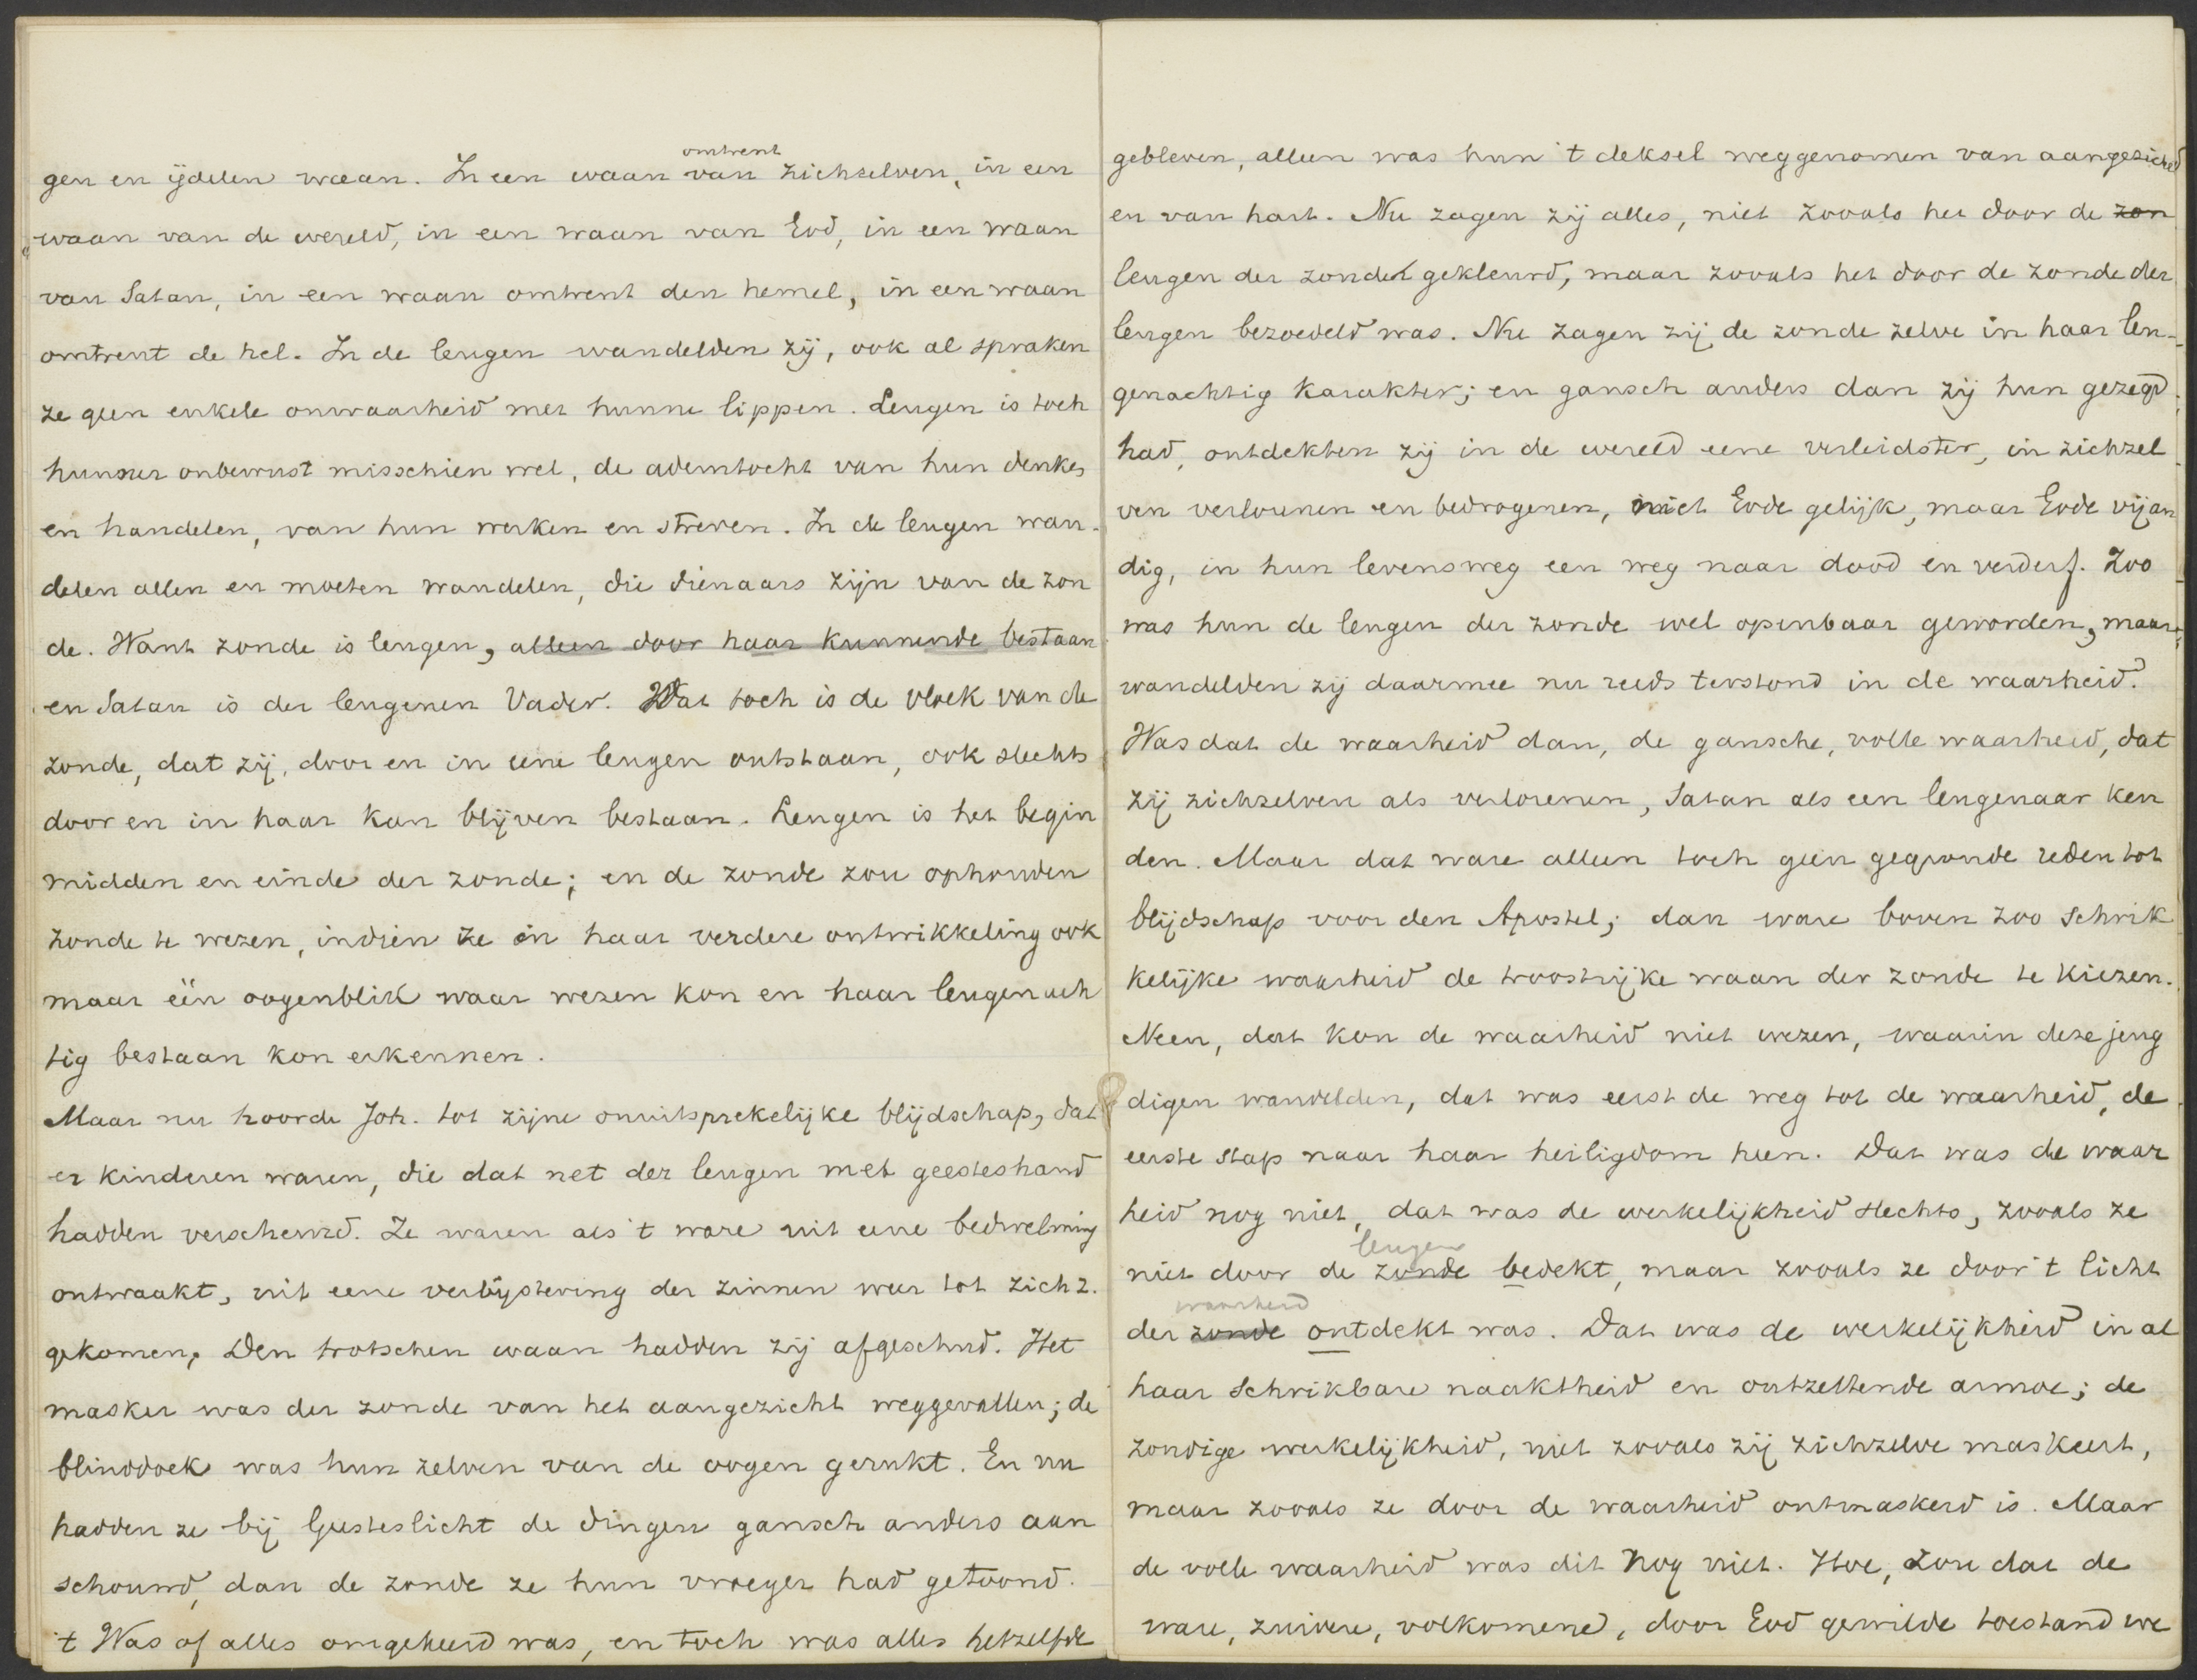 gen en ijdelen waan. In een waan omtrent van zichzelven, in een
waan van de wereld, in een waan van God, in een waan
van Satan, in een waan omtrent den hemel, in een waan
omtrent de hel. In de leugen wandelden zij, ook al spraken
ze geen enkele onwaarheid met hunne lippen. Leugen is toch
hunner onbewust misschien wel, de ademtocht van hun denken
en handelen, van hun werken en streven. In de leugen wan-
delen allen en moeten wandelen, die dienaars zijn van de zon
de. Want zonde is leugen, alleen door haar kunnende bestaan
en Satan is der leugenen Vader. Dat toch is de vloek van de
zonde, dat zij, door en in eene leugen ontstaan, ook slechts
door en in haar kan blijven bestaan. Leugen is het begin
midden en einde der zonde; en de zonde zou ophouden
zonde te wezen, indien ze in haar verdere ontwikkeling ook
maar één oogenblik waar wezen kon en haar leugenach
tig bestaan kon erkennen.
Maar nu hoorde Joh. tot zijne onuitsprekelijke blijdschap, dat
er kinderen waren, die dat net der leugen met geesteshand
hadden verscheurd. Ze waren als 't ware uit eene bedwelming
ontwaakt, uit eene verbijstering der zinnen weer tot zich z.
gekomen. Den trotschen waan hadden zij afgeschud. Het
masker was der zonde van het aangezicht weggevallen; de
blinddoek was hun zelven van de oogen gerukt. En nu
hadden ze bij Geesteslicht de dingen gansch anders aan
schouwd, dan de zonde ze hun vroeger had getoond.
't Was of alles omgekeerd was, en toch was alles hetzelfde
gebleven, alleen was hun 't deksel weggenomen van aangezicht
en van hart. Nu zagen zij alles, niet zooals het door de zon
leugen der zonde gekleurd, maar zooals het door de zonde der
leugen bezoedeld was. Nu zagen zij de zonde zelve in haar leu-
genachtig karakter; en gansch anders dan zij hun gezegd
had, ontdekten zij in de wereld eene verleidster, in zichzel
ven verlorenen en bedrogenen, niet Gode gelijk, maar Gode vijan
dig, in hun levensweg een weg naar dood en verderf. Zoo
was hun de leugen der zonde wel openbaar geworden, maar
wandelden zij daarmee nu reeds terstond in de waarheid?
Was dat de waarheid dan, de gansche, volle waarheid, dat
zij zichzelven als verlorenen, Satan als een leugenaar ken
den. Maar dat ware alleen toch geen gegronde reden tot
blijdschap voor den Apostel; dan ware boven zoo schrik
kelijke waarheid de troostrijke waan der zonde te kiezen.
Neen, dat kon de waarheid niet wezen, waarin deze jeug
digen wandelden, dat was eerst de weg tot de waarheid, de
eerste stap naar haar heiligdom heen. Dat was de waar
heid nog niet, dat was de werkelijkheid slechts, zooals ze
niet door de zonde leugen bedekt, maar zooals ze door 't licht
der zonde waarheid ontdekt was. Dat was de werkelijkheid in al
haar schrikbare naaktheid en ontzettende armoe; de
zondige werkelijkheid, niet zooals zij zichzelve maskeert,
maar zooals ze door de waarheid ontmaskerd is. Maar
de volle waarheid was dit nog niet. Hoe, zou dat de
ware, zuivere, volkomene, door God gewilde toestand we